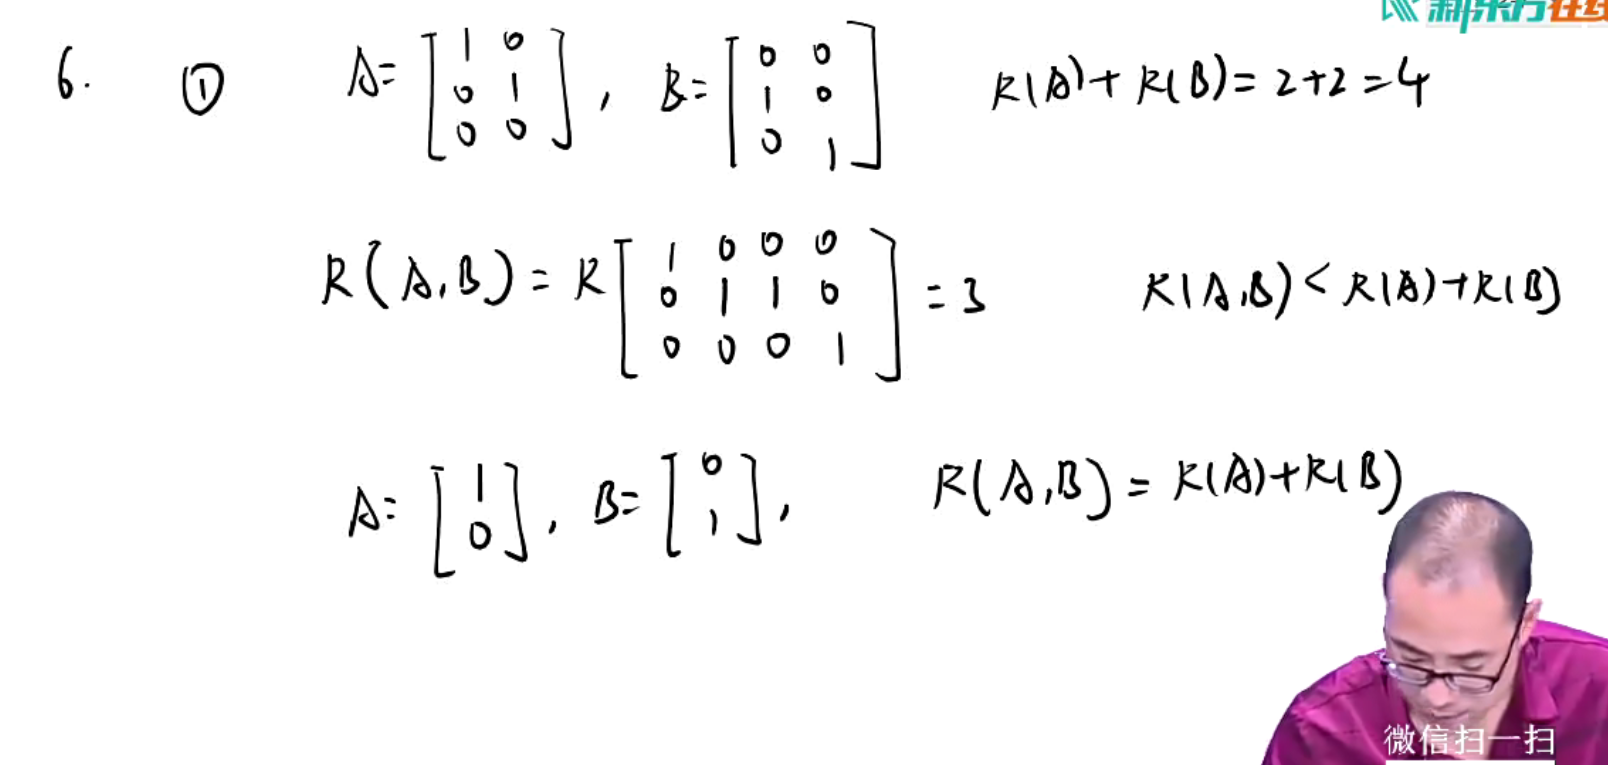 新东方在线
6. ① A=[1 0; 0 1; 0 0], B=[0 0; 1 0; 0 1] R(A)+R(B)=2+2=4
R(A,B)=R[1 0 0 0; 0 1 1 0; 0 0 0 1]=3 R(A,B)<R(A)+R(B)
A=[1; 0], B=[0; 1], R(A,B)=R(A)+R(B)
微信扫一扫